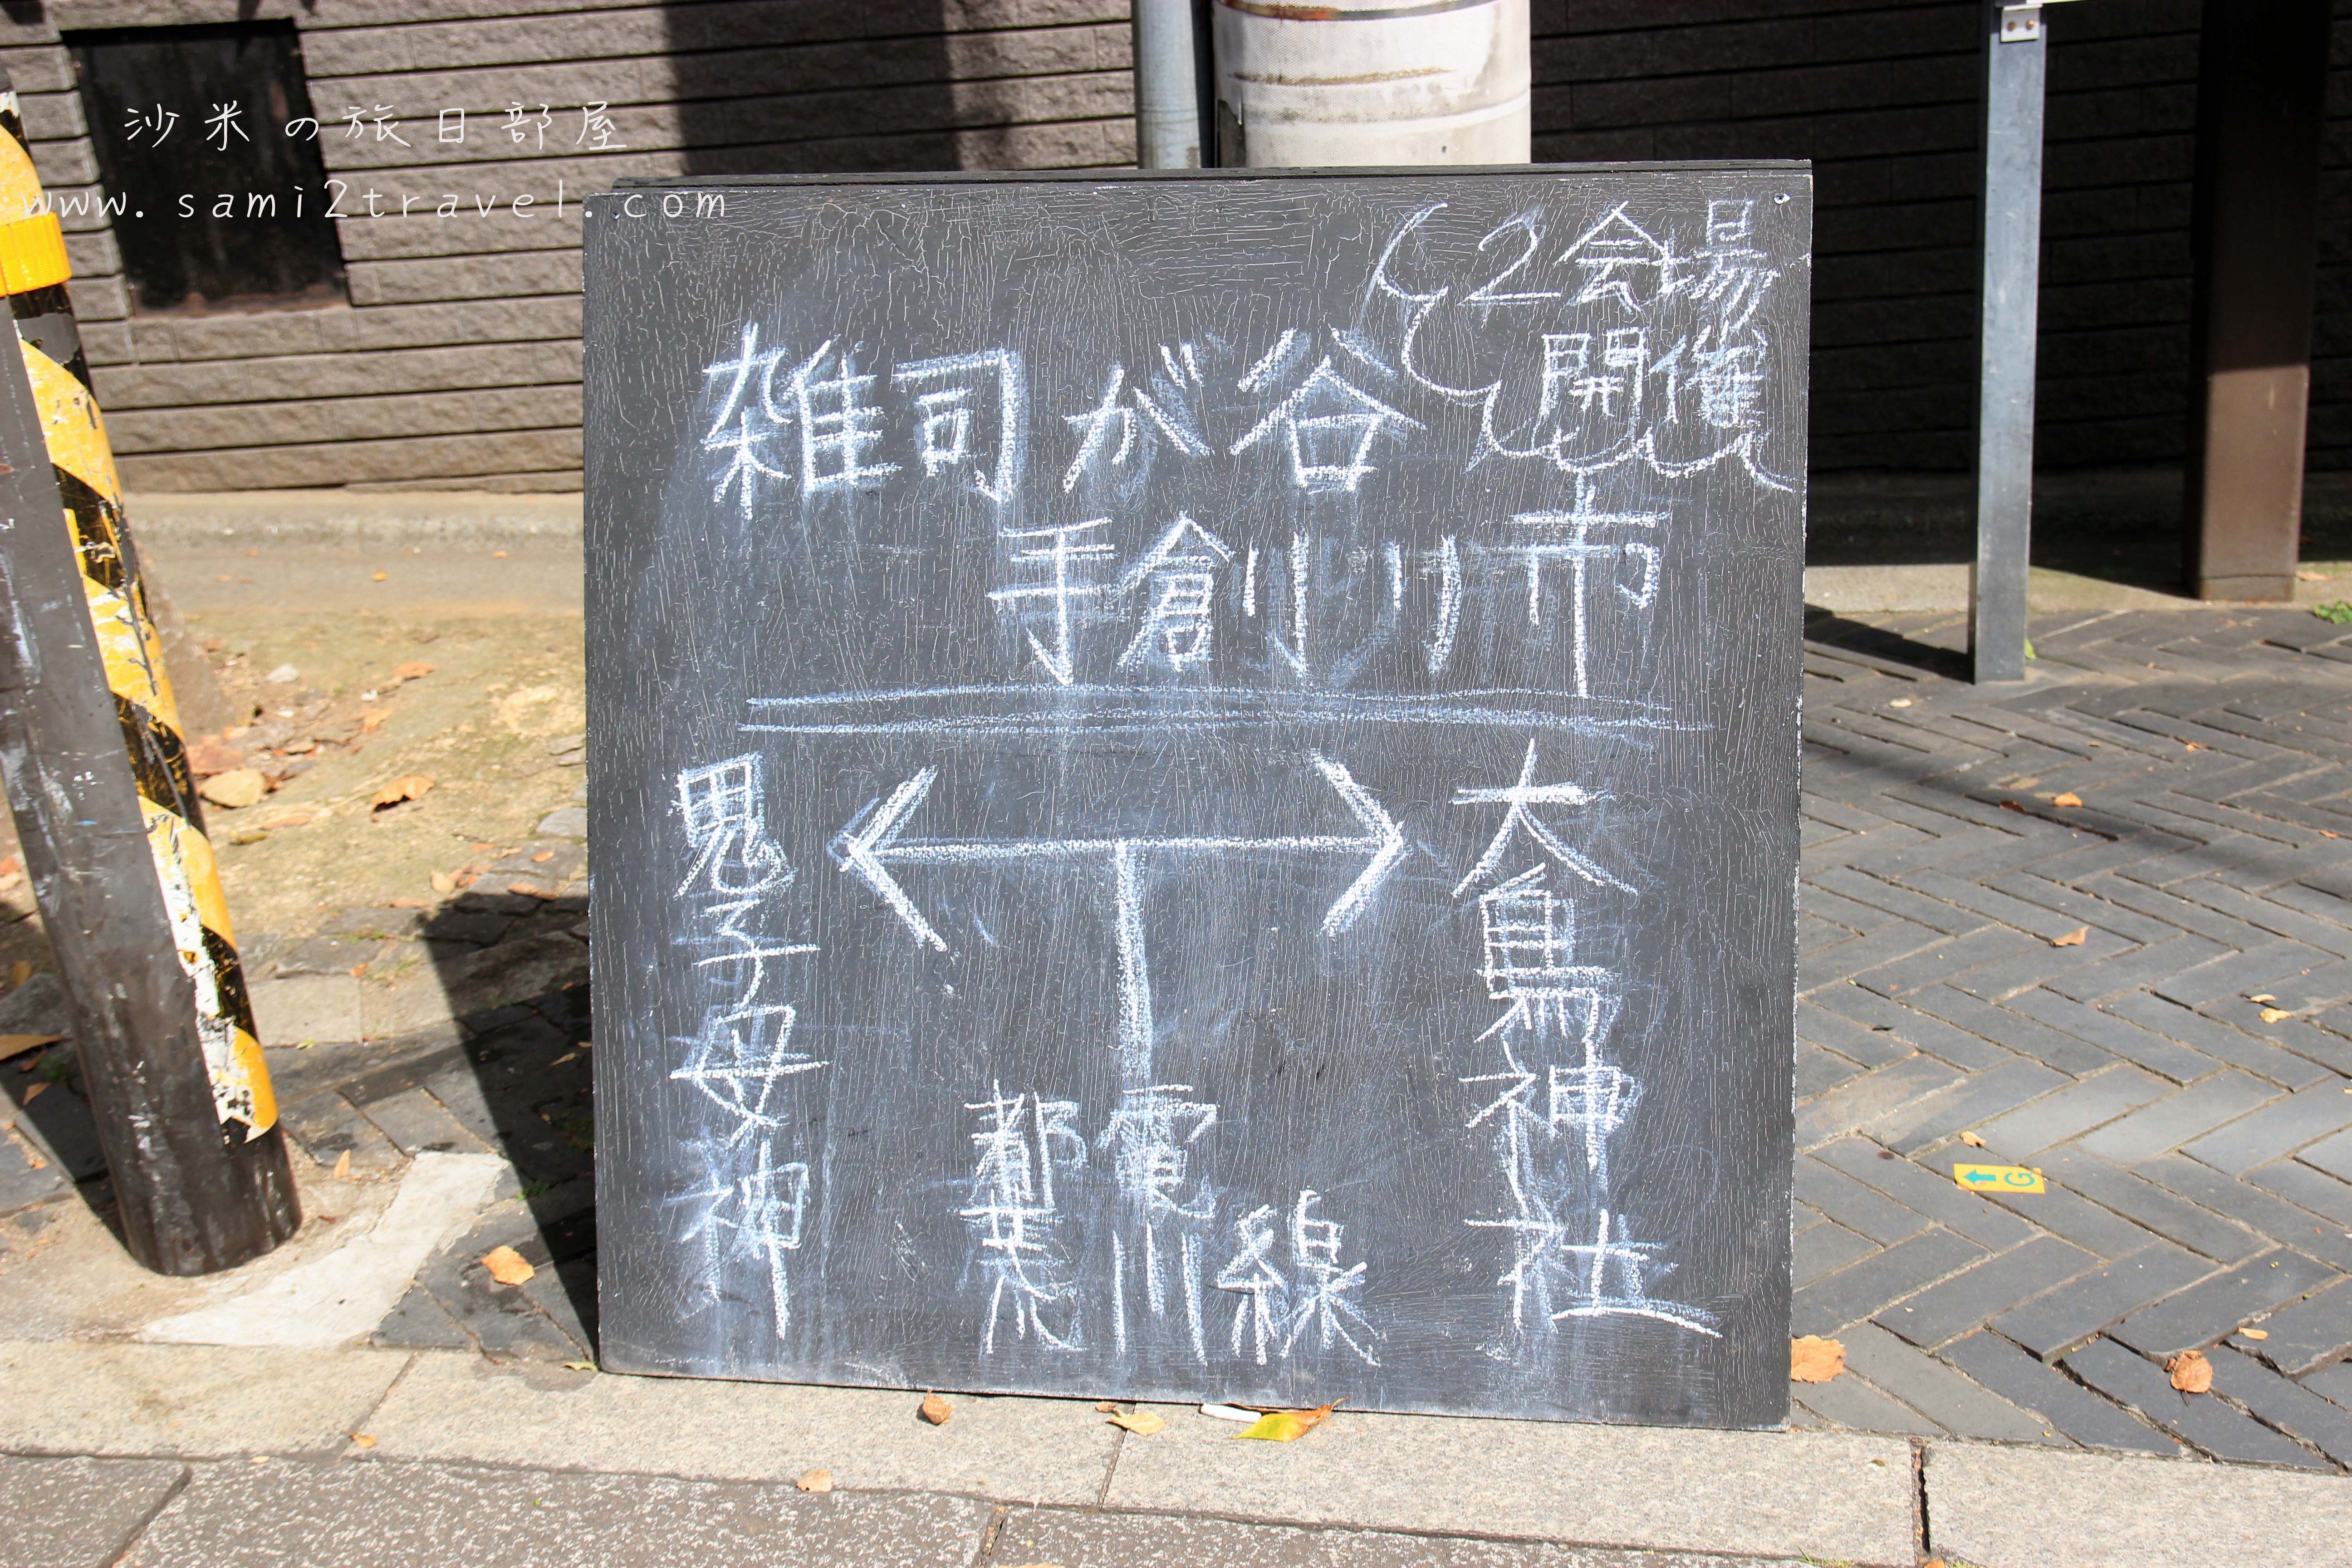 沙米の旅日部屋
www.sami2travel.com
2会場
開催
雑司が谷
手創り市
鬼子母神
大鳥神社
都電
荒川線
G